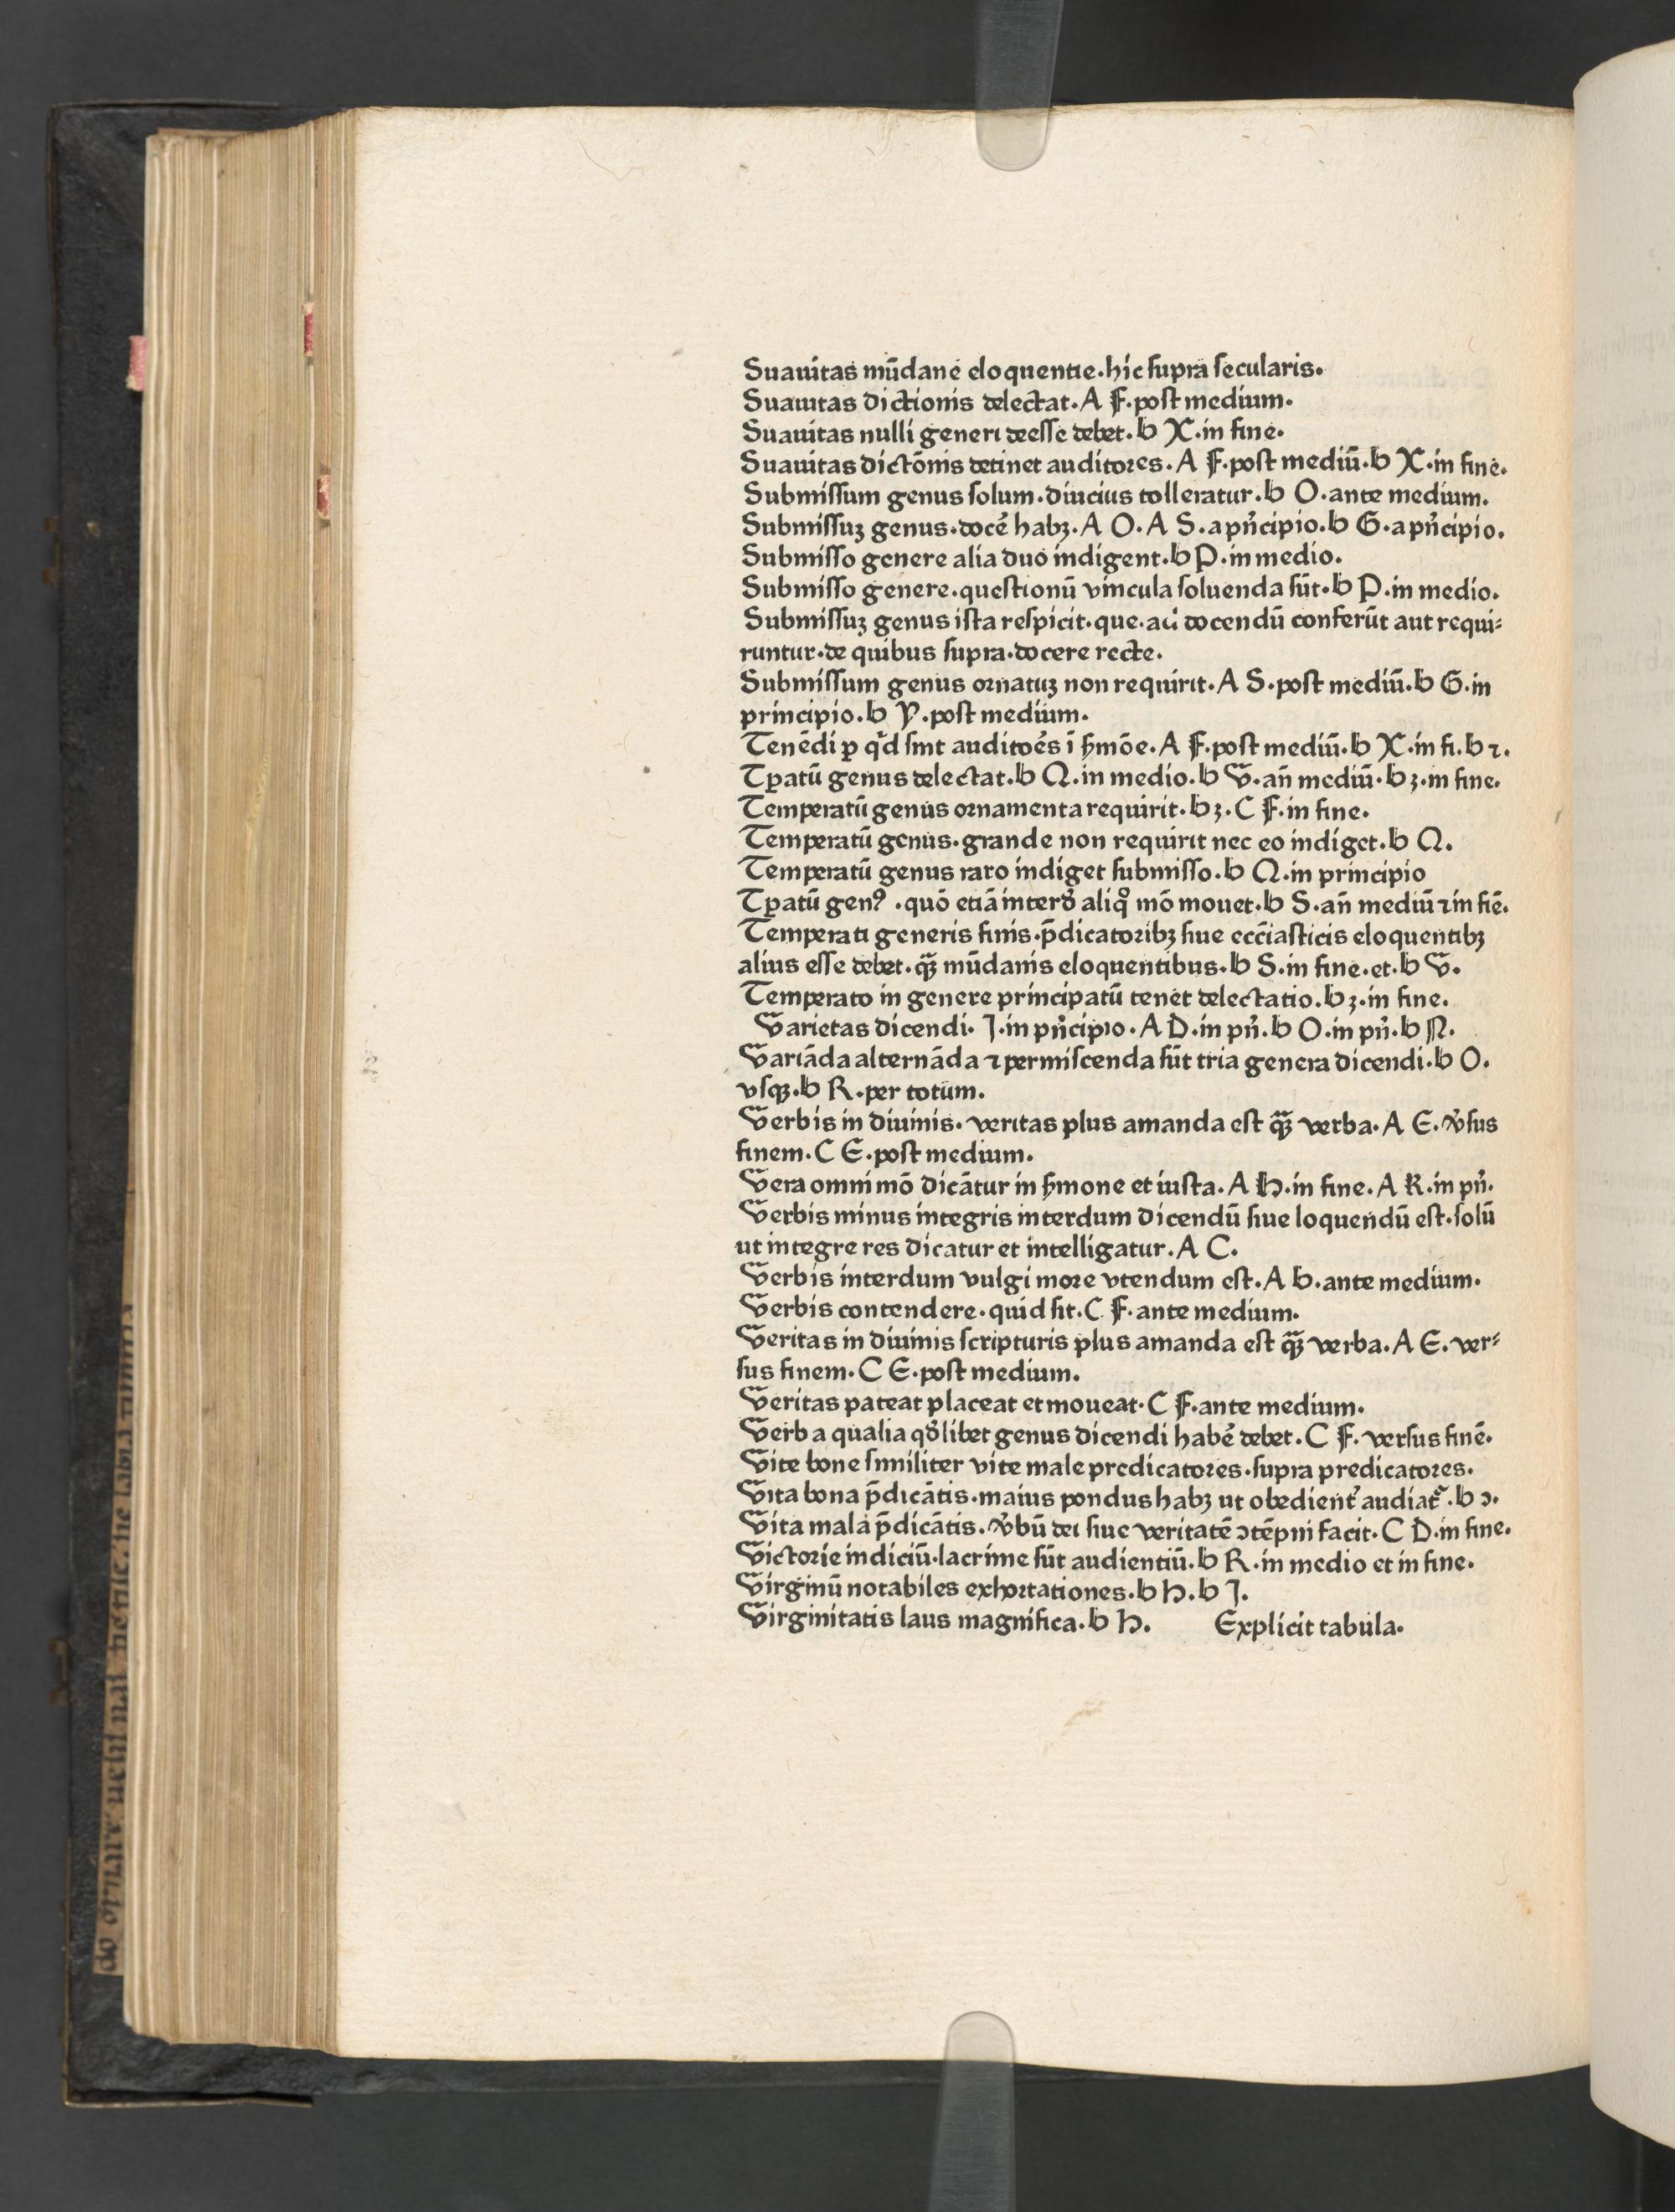 Suauitas mūdane eloquentie.hic supra secularis.
Suauitas dictionis delectat.A F.post medium.
Suauitas nulli generi deesse debet.b X.in fine.
Suauitas dictōnis detinet auditores.A F.post mediū.b X.in fine.
Submissum genus solum.diucius tolleratur.b O.ante medium.
Submissuꝫ genus.docē habꝫ.A O.A S.a pn̄cipio.b G.a pn̄cipio.
Submisso genere alia duo indigent.b P.in medio.
Submisso genere.questionū vincula soluenda sūt.b P.in medio.
Submissuꝫ genus ista respicit.que.ad docendū conferūt aut requi⸗
runtur.de quibus supra.docere recte.
Submissum genus ornatuꝫ non requirit.A S.post mediū.b G.in
principio.b Y.post medium.
Tenēdi ꝑ qd̓ sint auditoēs ī ẜmōe.A F.post mediū.b X.in fi.b ꝛ.
Tꝑatū genus delectat.b Q.in medio.b V.an̄ mediū.b ꝫ.in fine.
Temperatū genus ornamenta requirit.b ꝫ.C F.in fine.
Temperatū genus.grande non requirit nec eo indiget.b Q.
Temperatū genus raro indiget submisso.b Q.in principio
Tꝑatū genꝰ.quō etiā interd̓ aliqͦ mō mouet.b S.an̄ mediū ⁊ in fiē.
Temperati generis finis.p̄dicatoribꝫ siue ecc̄iasticis eloquentibꝫ
alius esse debet.qꝫ̄ mūdanis eloquentibus.b S.in fine.et.b V.
Temperato in genere principatū tenet delectatio.b ꝫ.in fine.
Varietas dicendi.J.in pn̄cipio.A D.in pn̄.b O.in pn̄.b N.
Variāda alternāda ⁊ permiscenda sūt tria genera dicendi.b O.
vsqꝫ.b R.per totum.
Verbis in diuinis.veritas plus amanda est qꝫ̄ verba.A E.v̓sus
finem.C E.post medium.
Vera omni mō dicātur in ẜmone et iusta.A H.in fine.A K.in pn̄.
Verbis minus integris interdum dicendū siue loquendū est.solū
ut integre res dicatur et intelligatur.A C.
Verbis interdum vulgi more vtendum est.A b.ante medium.
Verbis contendere.quid sit.C F.ante medium.
Veritas in diuinis scripturis plus amanda est qꝫ̄ verba.A E.ver⸗
sus finem.C E.post medium.
Veritas pateat placeat et moueat.C F.ante medium.
Verba qualia qd̓libet genus dicendi habē debet.C F.versus finē.
Vite bone similiter vite male predicatores.supra predicatores.
Vita bona p̄dicātis.maius pondus habꝫ ut obedient̓ audiat᷑.b ɔ.
Vita mala p̄dicātis.v̓bū dei siue veritatē ɔtēpni facit.C D.in fine.
Victorie indiciū.lacrime sūt audientiū.b R.in medio et in fine.
Virginū notabiles exhortationes.b H.b J.
Virginitatis laus magnifica.b H. Explicit tabula.